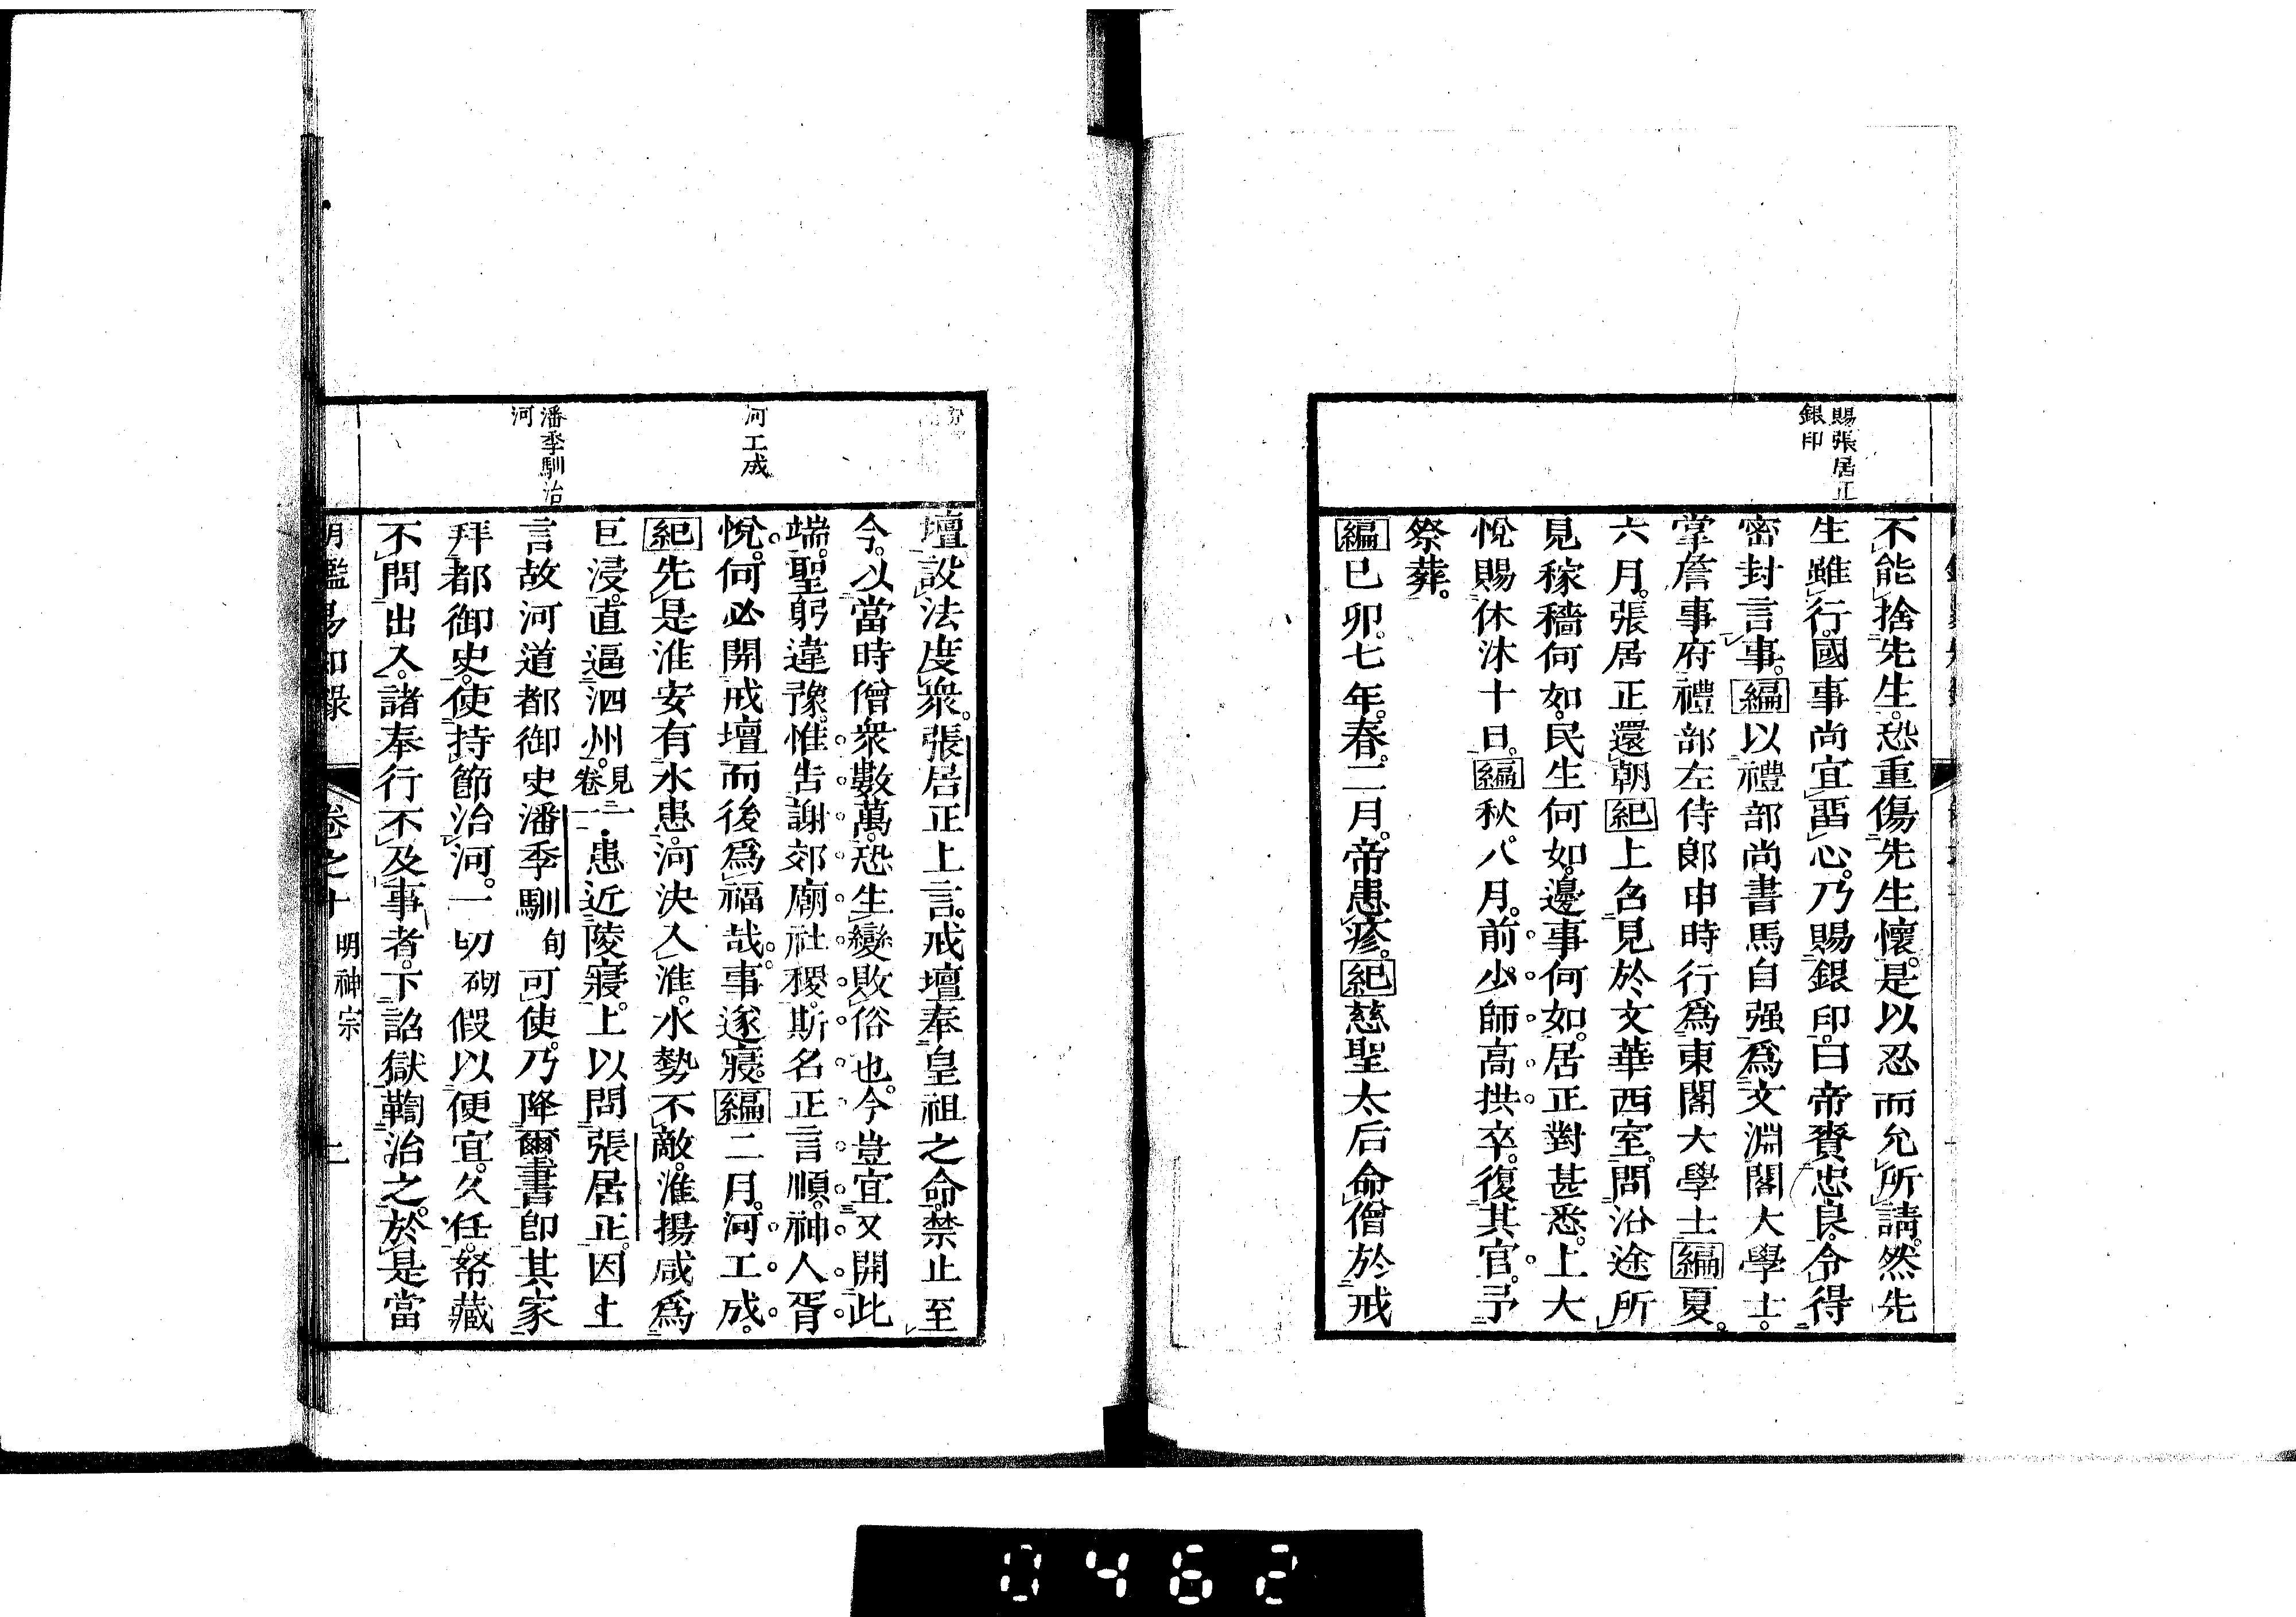 賜張居正
銀印
不能捨先生。恐重傷先生懷。是以忍而允所請。然先
生雖行。國事尚宜畱心。乃賜銀印。曰帝賚忠良。令得
密封言事。編以禮部尚書馬自强爲文淵閣大學士。
掌詹事府禮部左侍郎申時行爲東閣大學士編夏。
六月。張居正還朝紀上召見於文華西室。問沿途所
見稼穡何如。民生何如。邊事何如。居正對甚悉。上大
悅賜休沐十日。編秋。八月。前少師高拱卒。復其官。予
祭葬。
編己卯。七年。春。二月。帝患疹。紀慈聖太后命僧於戒
壇設法度衆。張居正上言。戒壇奉皇祖之命。禁止至
今。以當時僧衆數萬。恐生變敗俗也。今豈宜又開此
端。聖躬違豫。惟告謝郊廟社稷。斯名正言順。神人胥
悅。何必開戒壇而後爲福哉。事遂寢。編二月。河工成。
紀先是淮安有水患。河決入淮。水勢不敵。淮揚咸爲
巨浸。直逼泗州。見二卷一患近陵寢。上以問張居正。因上
言故河道都御史潘季馴旬可使。乃降璽書即其家
拜都御史。使持節治河。一切砌假以便宜。久任。帑藏
不問出入。諸奉行不及事者。下詔獄鞫治之。於是當
河工成
潘季馴治
河
明鑑易知錄
卷之十
明神宗